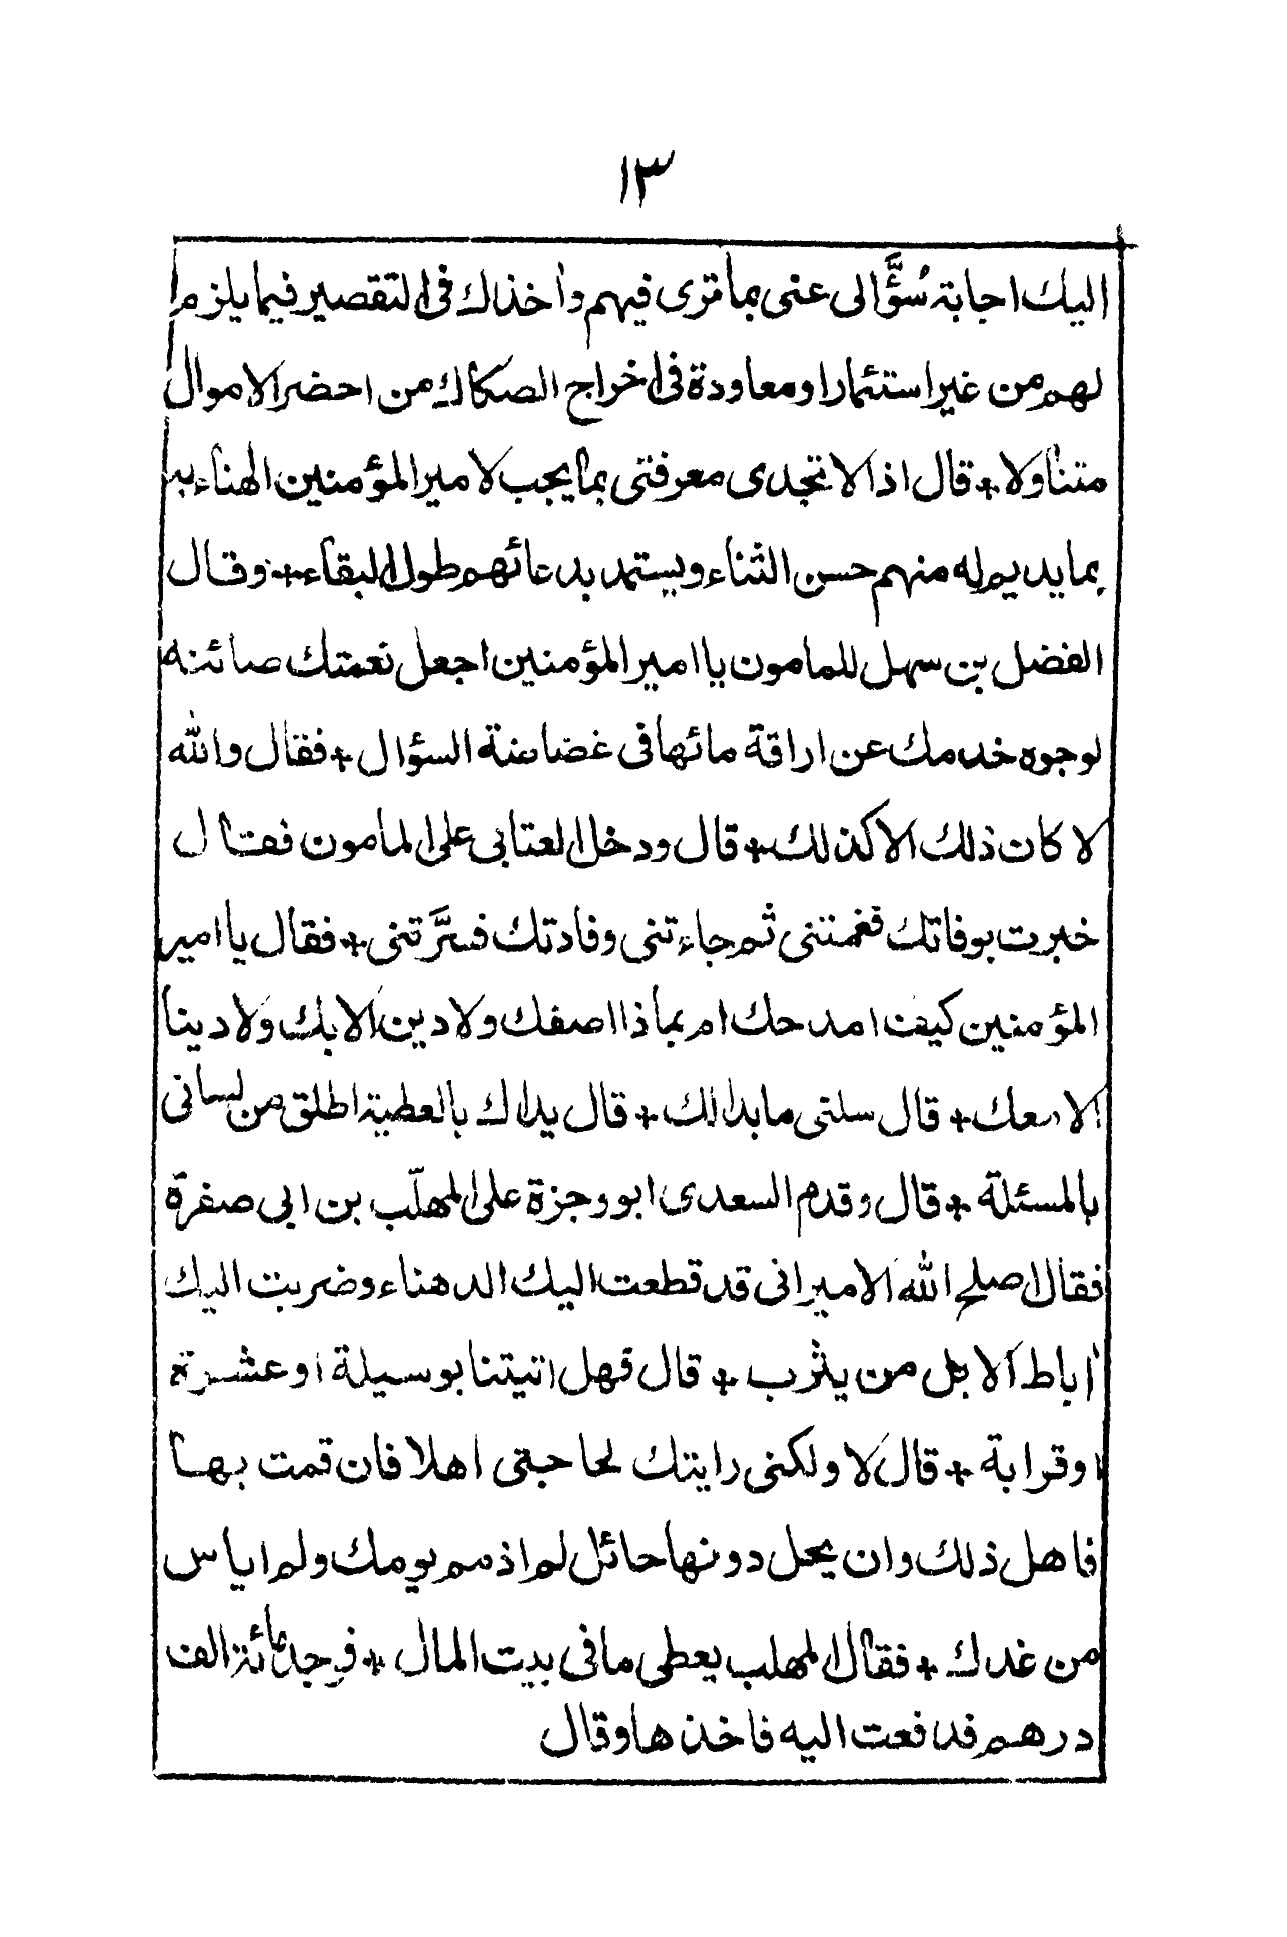 ١٣
اليك اجابة سُؤَّالى عنى بما ترى فيهم واخذاك فى التقصير فيما يلزم
لهم من غير استئمارا ومعاودة فى اخراج الصكاك من احضر الاموال
متناولا + قال اذا لا تجدى معرفتى بما يجب لامير المؤمنين الهناء به
بما يديم له منهم حسن الثناء ويستمد بدعائهم طول البقاء + وقال
الفضل بن سهل للمامون يا امير المؤمنين اجعل نعمتك صائنه
لوجوه خدمك عن اراقة مائها فى غضاضة السؤال + فقال والله
لا كان ذلك الا كذلك + قال ودخل العتابى على المامون فقال
خبرت بوفاتك فغمتنى ثم جاءتنى وفادتك فسرَّتنى + فقال يا امير
المؤمنين كيف امدحك ام بماذا اصفك ولا دين الا بك ولا دينا
الا معك + قال سلنى ما بدا لك + قال يداك بالعطية اطلق من لسانى
بالمسئلة + قال وقدم السعدى ابو وجزة على المهلّب بن ابى صفرة
فقال اصلح الله الامير انى قد قطعت اليك الدهناء وضربت اليك
أباط الابل من يثرب + قال فهل اتيتنا بوسيلة او عشرة
او قرابة + قال لا ولكنى رايتك لحاجتى اهلا فان قمت بها
فاهل ذلك وان يحل دونها حائل لم اذمم يومك ولم اياس
من غدك + فقال المهلب يعطى ما فى بيت المال + فوجد مائة الف
درهم فدفعت اليه فاخذها وقال